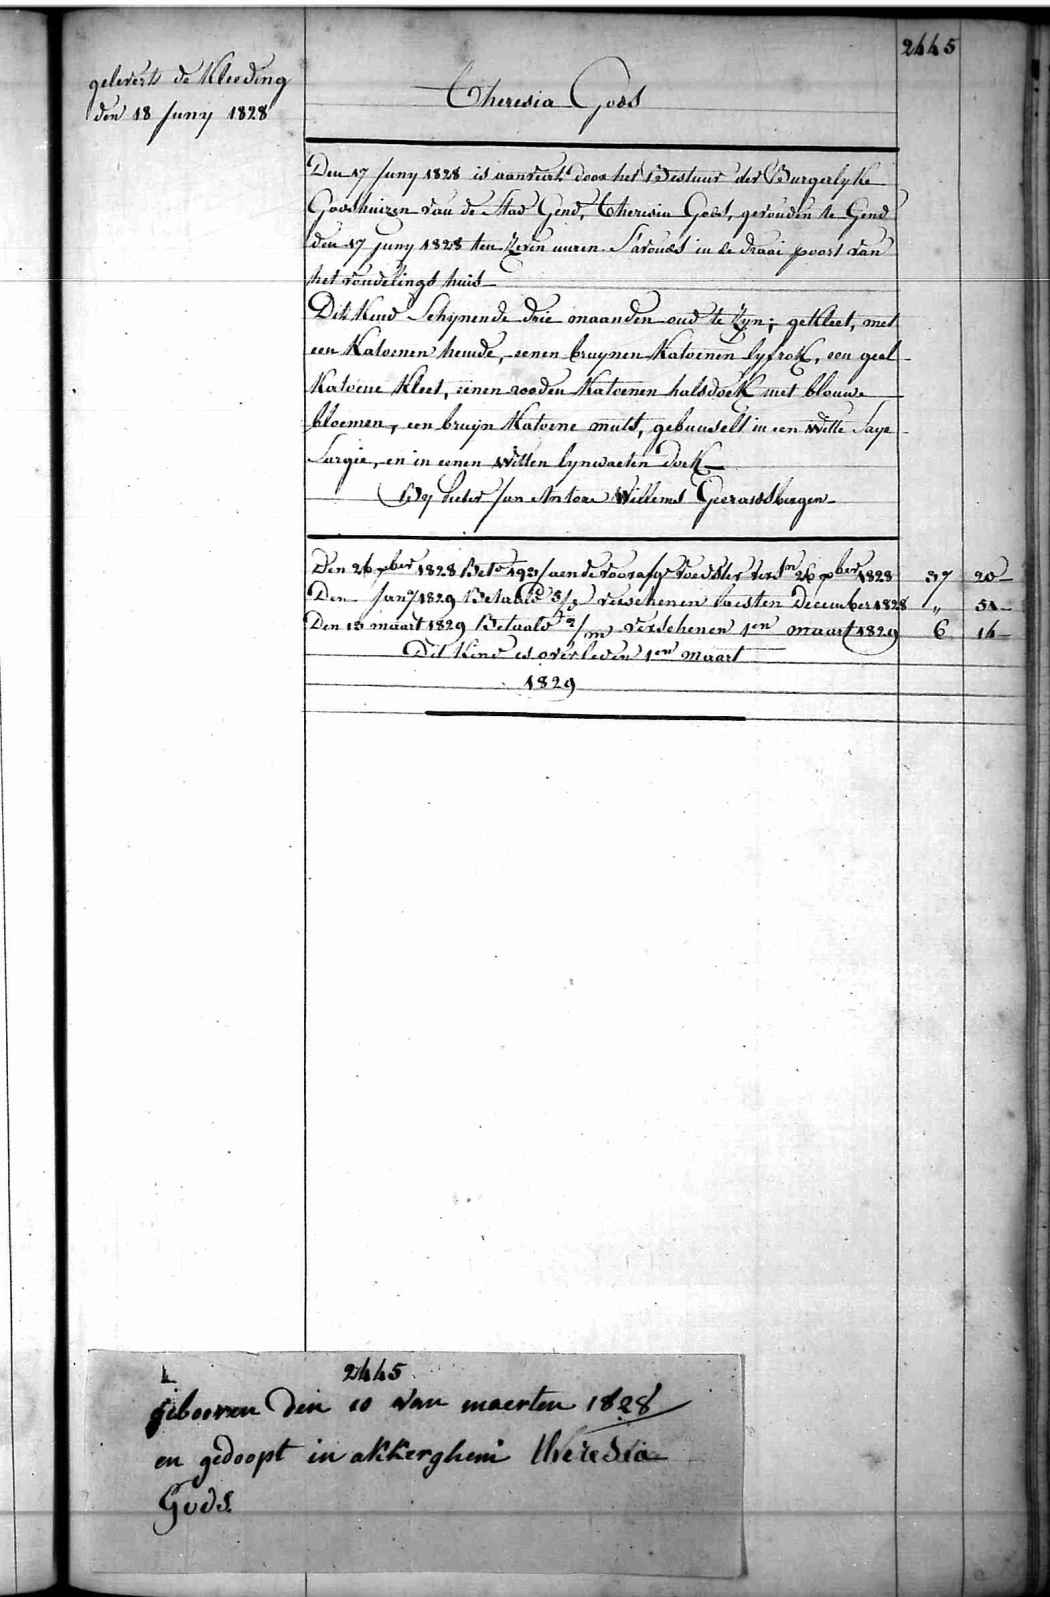 2445
gelevert de Kleeding
den 18 Juny 1828
Theresia Goos
Den 17 Juny 1828 is aanveert door het Bestuur der Burgerlyke
Godshuizen van de Stad Gend, Theresia Goos, gevonden te Gend
den 17 Juny 1828 ten Zeven uuren S'avonds in de draai poort van
het vondelings huis
Dit Kind Schynende drie maanden oud te Zyn; gekleet, met
een Katoenen hemde, eenen bruynen Katoenen lyfrok, een geel
Katoene Kleet, eenen rooden Katoenen halsdoek met blouwe
bloemen, een bruyn Katoene muts, gebunselt in een Witte Saye
Sargie, en in eenen Witten lynwaeten doek
By Pieter Jan Antone Willems Geerardsbergen
Den 26 xber 1828 Bet° 193 daende voorafg voedster vers 26 xber 1828 37 20
Den Jany 1829 Betaald 5/3 verschenen laesten December 1828 " 51
Den 13 maart 1829 Betaald 2/m verschenen 1en maart 1829 6 16
Dit Kind is overleden 1en maart
1829
2445
gebooren den 10 van maerten 1828
en gedoopt in akkerghem theresia
Goos.